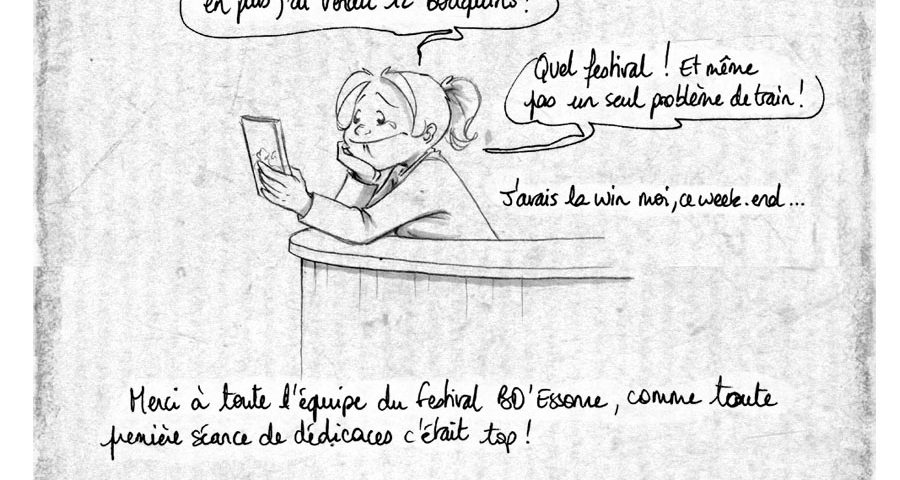 en plus j'ai vendu 12 bouquins !
Quel festival ! Et même
pas un seul problème de train !
J'avais la win moi, ce week-end...
Merci à toute l'équipe du festival BD'Essonne, comme toute
première séance de dédicaces c'était top !